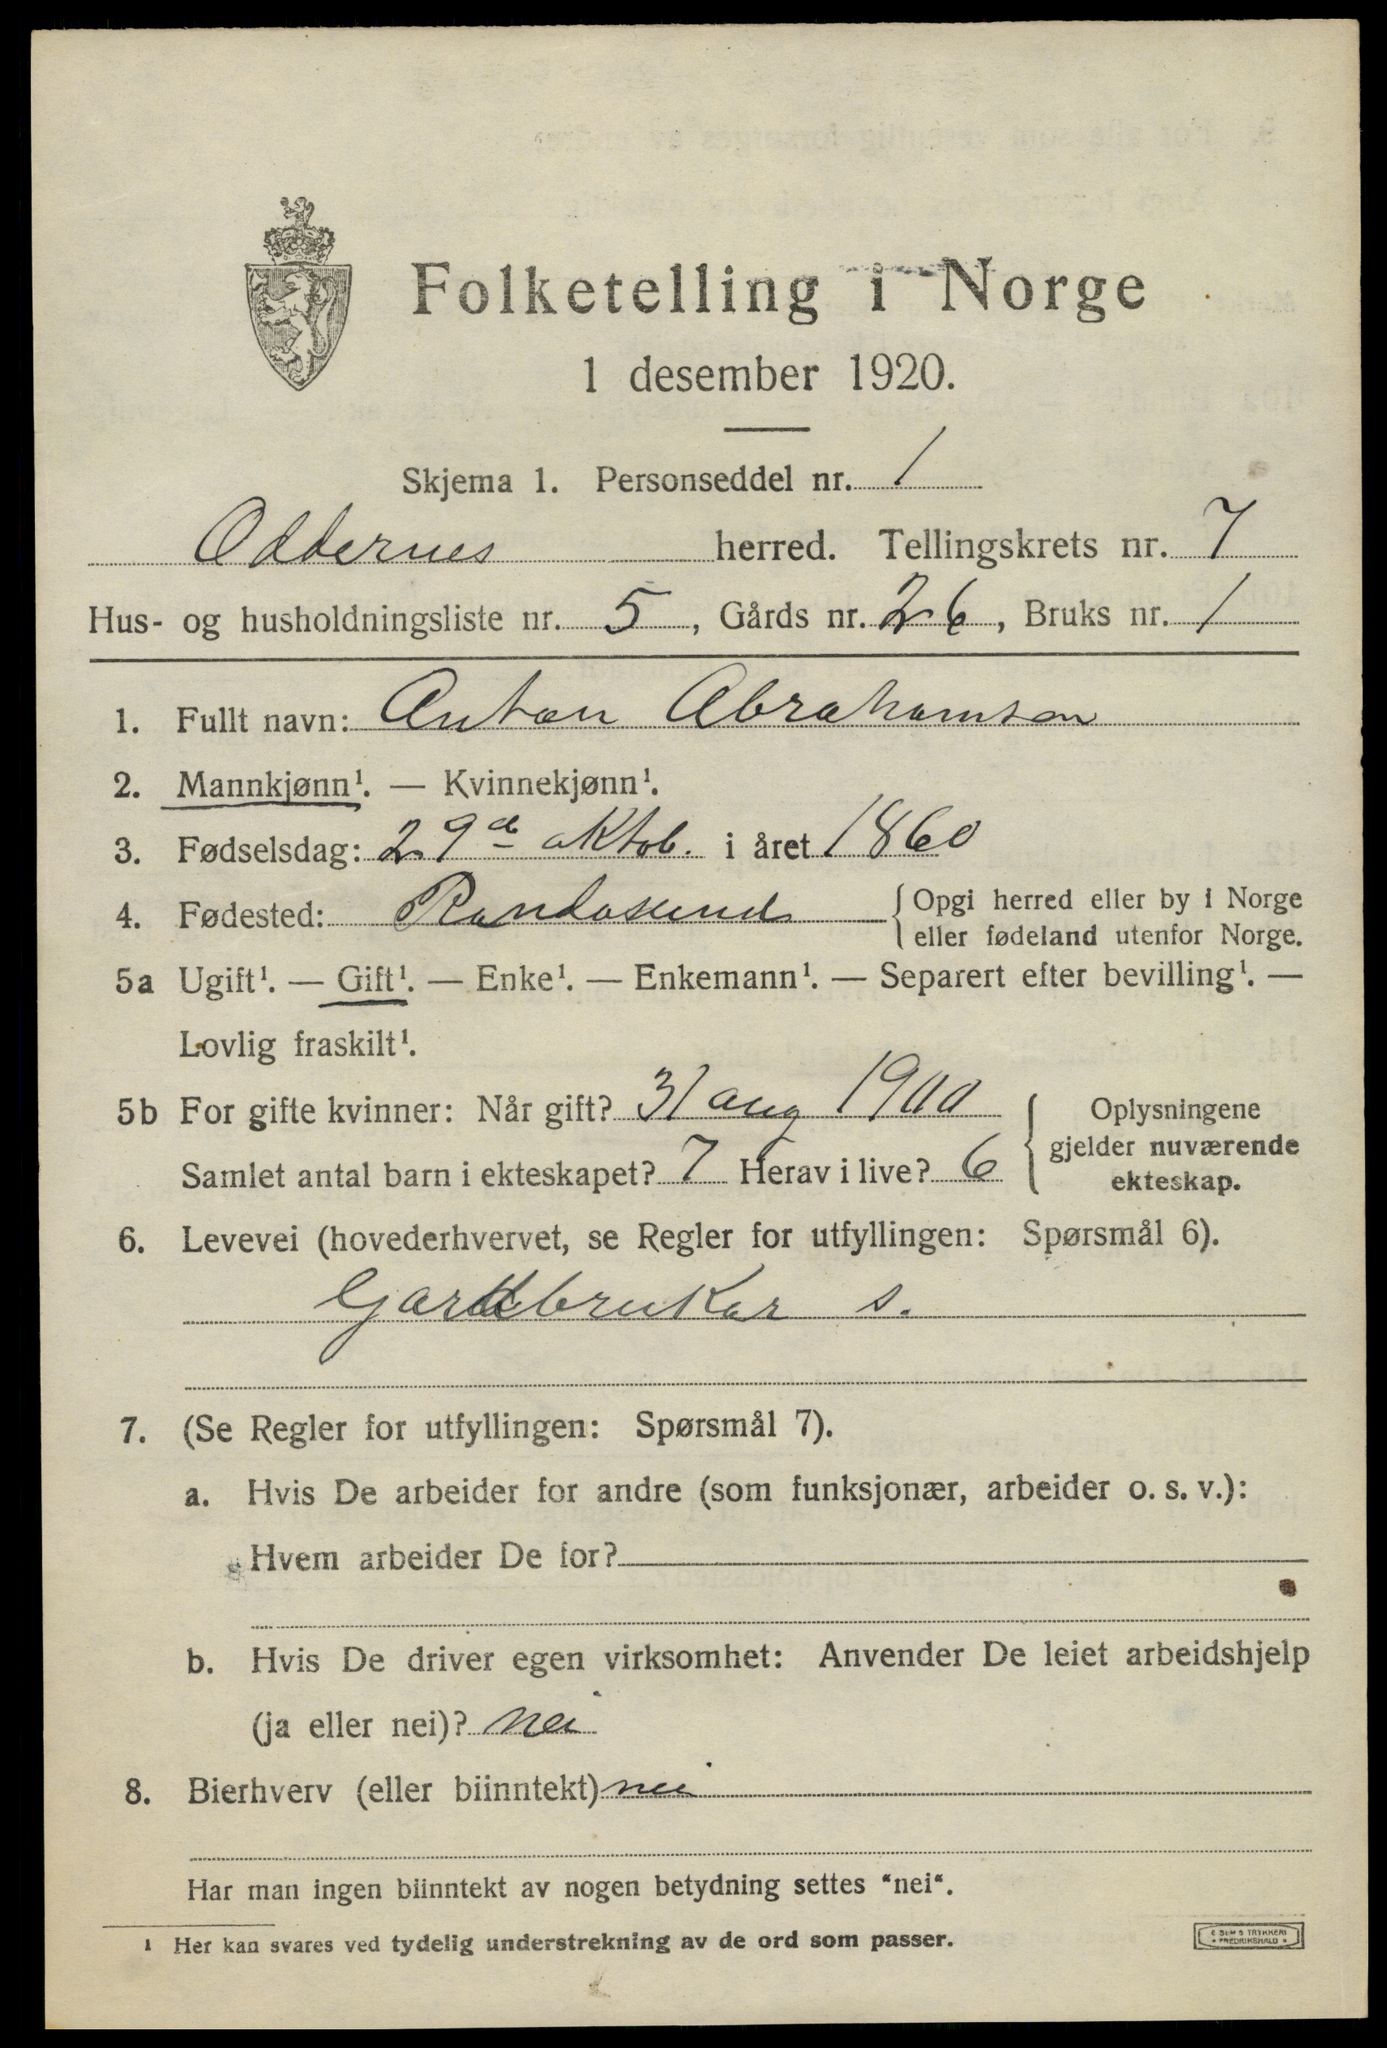 Folketelling i Norge
1 desember 1920.
Skjema 1. Personseddel nr. 1
Oddernes herred. Tellingskrets nr. 7
Hus- og husholdningsliste nr. 5, Gårds nr. 26, Bruks nr. 1
1. Fullt navn: Anton Abrahamsen
2. Mannkjønn¹. — Kvinnekjønn¹.
3. Fødselsdag: 29de oktob. i året 1860
4. Fødested: Randøsund { Opgi herred eller by i Norge
eller fødeland utenfor Norge.
5a Ugift¹. — Gift¹. — Enke¹. — Enkemann¹. — Separert efter bevilling¹. —
Lovlig fraskilt¹.
5b For gifte kvinner: Når gift? 31 aug 1900 { Oplysningene
gjelder nuværende
ekteskap.
Samlet antal barn i ekteskapet? 7 Herav i live? 6
6. Levevei (hovederhvervet, se Regler for utfyllingen: Spørsmål 6).
Gardbrukar s.
7. (Se Regler for utfyllingen: Spørsmål 7).
a. Hvis De arbeider for andre (som funksjonær, arbeider o. s. v.):
Hvem arbeider De for?
b. Hvis De driver egen virksomhet: Anvender De leiet arbeidshjelp
(ja eller nei)? nei
8. Bierhverv (eller biinntekt) nei
Har man ingen biinntekt av nogen betydning settes "nei".
¹ Her kan svares ved tydelig understrekning av de ord som passer.
E SEM'S TRYKKERI
• FREDRIKSHALD •